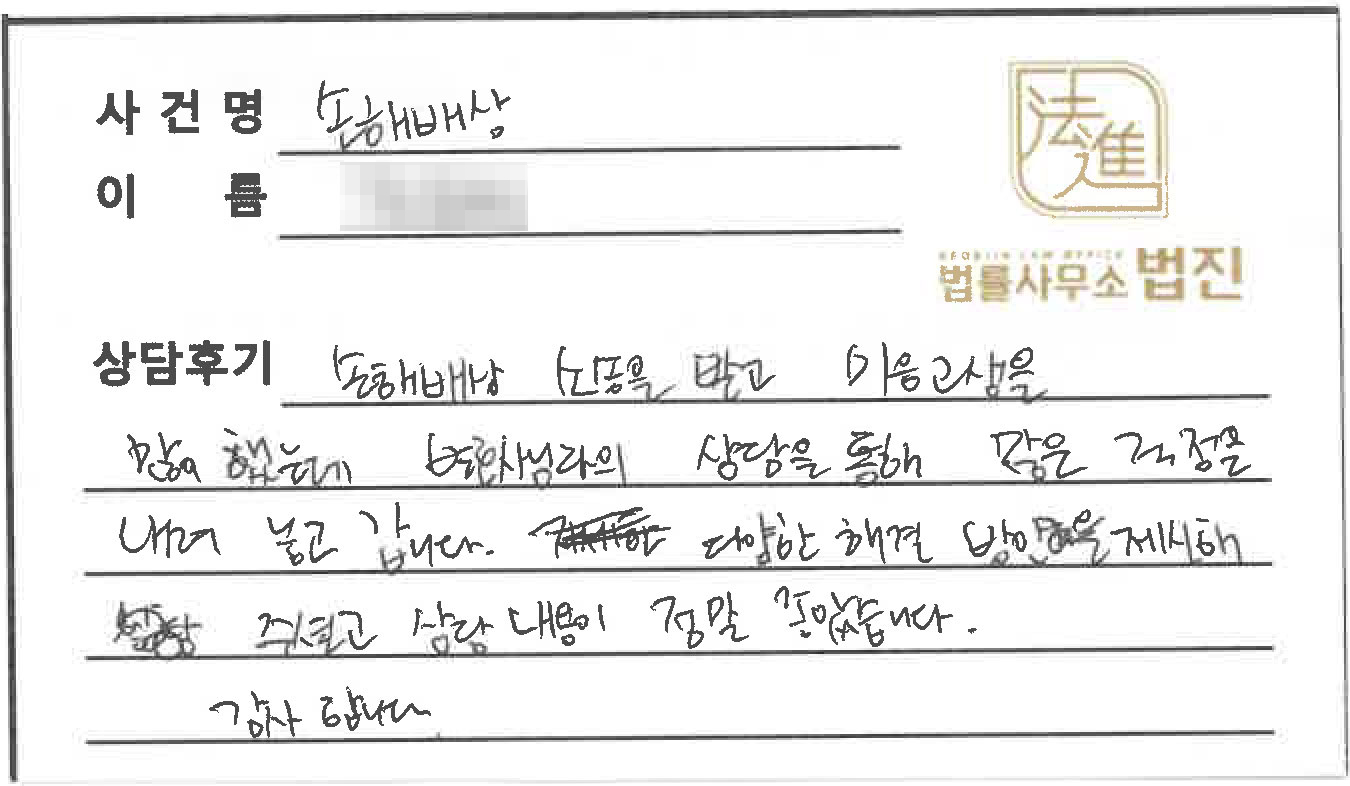 사건명 손해배상
法進
이 름
BEOBJIN LAW OFFICE
법률사무소 법진
상담후기 손해배상 소송을 받고 마음고생을
많이 했는데 변호사님과의 상담을 통해 많은 걱정을
내려 놓고 갑니다. 다양한 해결 방안을 제시해
주셨고 상담 내용이 정말 좋았습니다.
감사 합니다